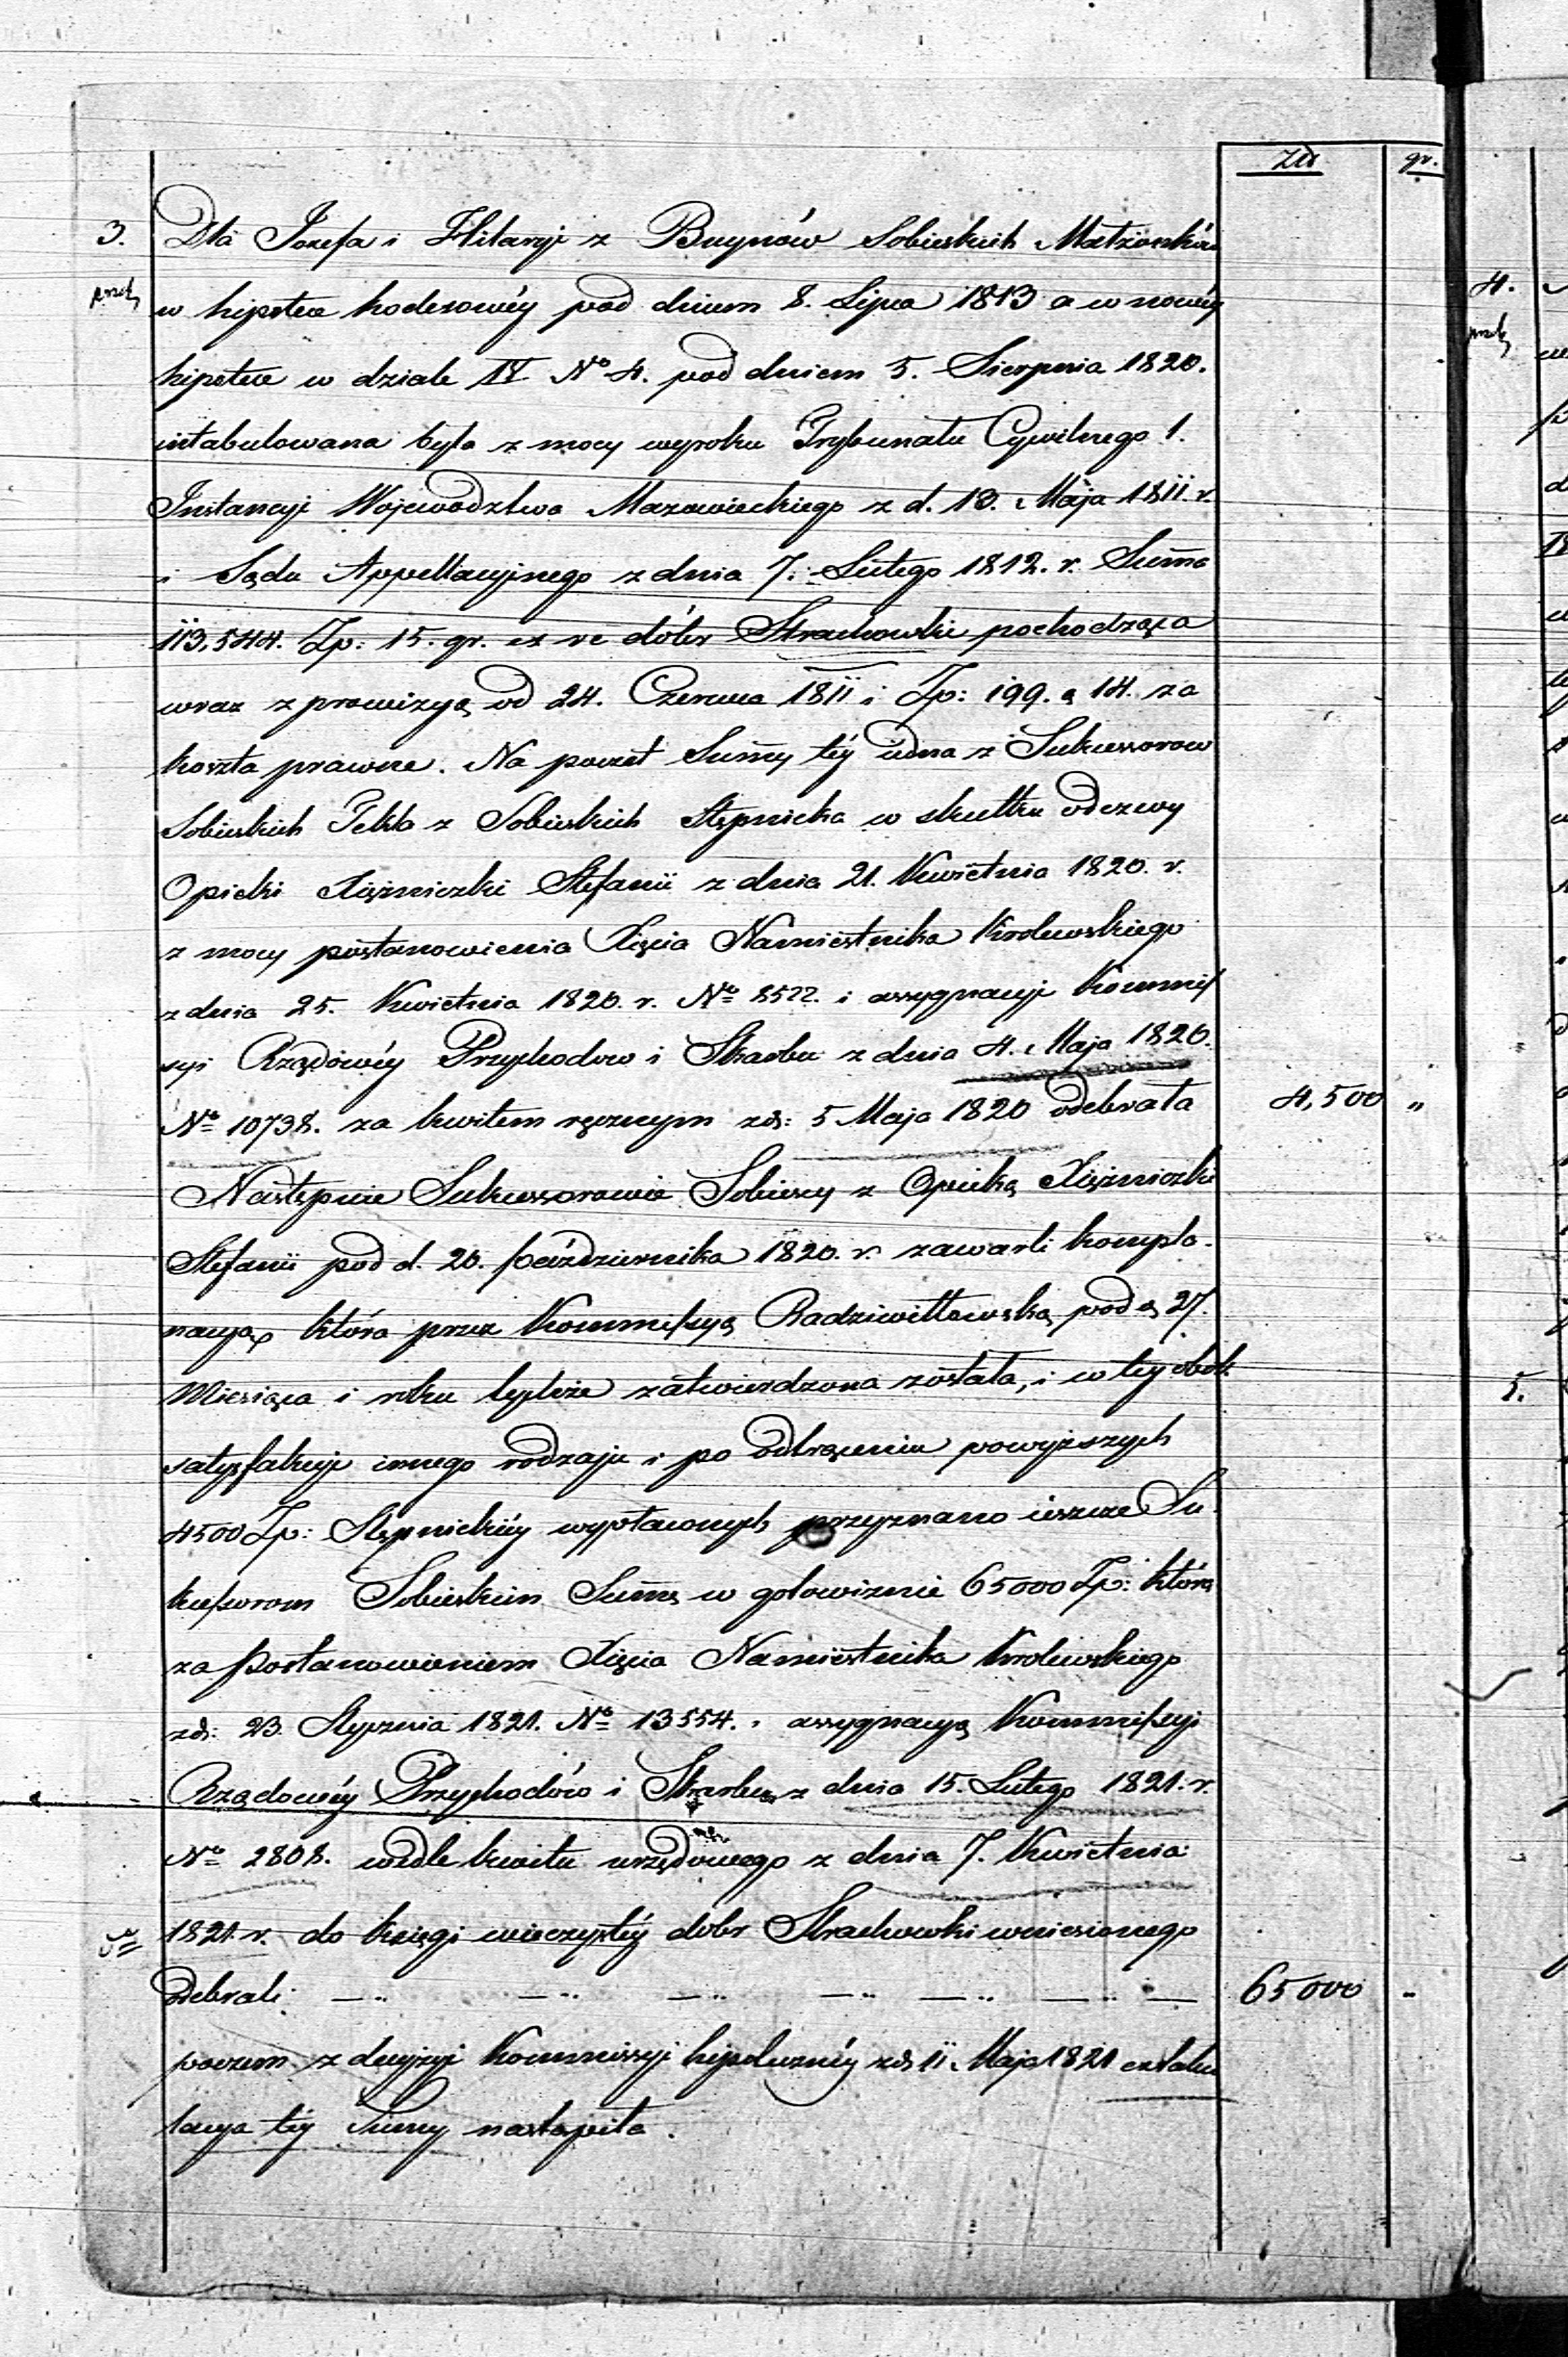 Złł gr.
3. Dla Jozefa i Hilaryi z Buynów Sobieskich Małżonków
w hipotece kodexowéy pod dniem 8. Lipca 1813 a w nowéy
hipotece w dziale IV No 4. pod dniem 5. Sierpnia 1820.
intabulowana była z mocy wyroku Trybunału Cywilnego 1.
Instancyi Województwa Mazowieckiego z d. 13. Maja 1811 r.
i Sądu Appellacyjnego z dnia 7. Lutego 1812. r. Summa
113,544. Zp: 15. gr. ex re dóbr Strachowki pochodząca
wraz z prowizyą od 24. Czerwca 1811 i Zp: 199. g 14. za
koszta prawne. Na poczet Summy téy iedna z Sukcessorow
Sobieskich Tekla z Sobieskich Stępnicka w skutku odezwy
Opieki Xiężniczki Stefanii z dnia 21. Kwietnia 1820. r.
z mocy postanowienia Xięcia Namiestnika Krolewskiego
z dnia 25. Kwietnia 1820. r. No 8522. i assygnacyi Kommis
syi Rządowéy Przychodow i Skarbu z dnia 4. Maja 1820.
No 10738. za kwitem ręcznym z d: 5 Maja 1820 odebrała 4,500 „
Następnie Sukcessorowie Sobiescy z Opieką Xiężniczki
Stefanii pod d. 20. października 1820. r. zawarli kompla-
nacyą, która przez Kommissyą Radziwiłłowską pod d. 27.
Miesiąca i roku tegoż zatwierdzona została, i w tey obok
satysfakcyi innego rodzaju i po odtrąceniu powyższych
4500 Zp: Stępnickiéy wypłaconych przyznano ieszcze Su-
kcessorom Sobieskim Summę w gotowiznie 65000 Zp: którą
za postanowieniem Xięcia Namiestnika Krolewskiego
z d: 23 Stycznia 1821. No 13554. i assygnacyą Kommissyi
Rządowéy Przychodów i Skarbu z dnia 15. Lutego 1821. r.
No 2808. wedle kwitu urzędowego z dnia 7. Kwietnia
1821. r. do księgi wieczystéy dobr Strachowki wniesionego
odebrali 65000 „
poczem z decyzyi Kommissyi hipoteczney z d. 11 Maja 1821 extabu
lacya téy Summy nastąpiła.
4.
5.